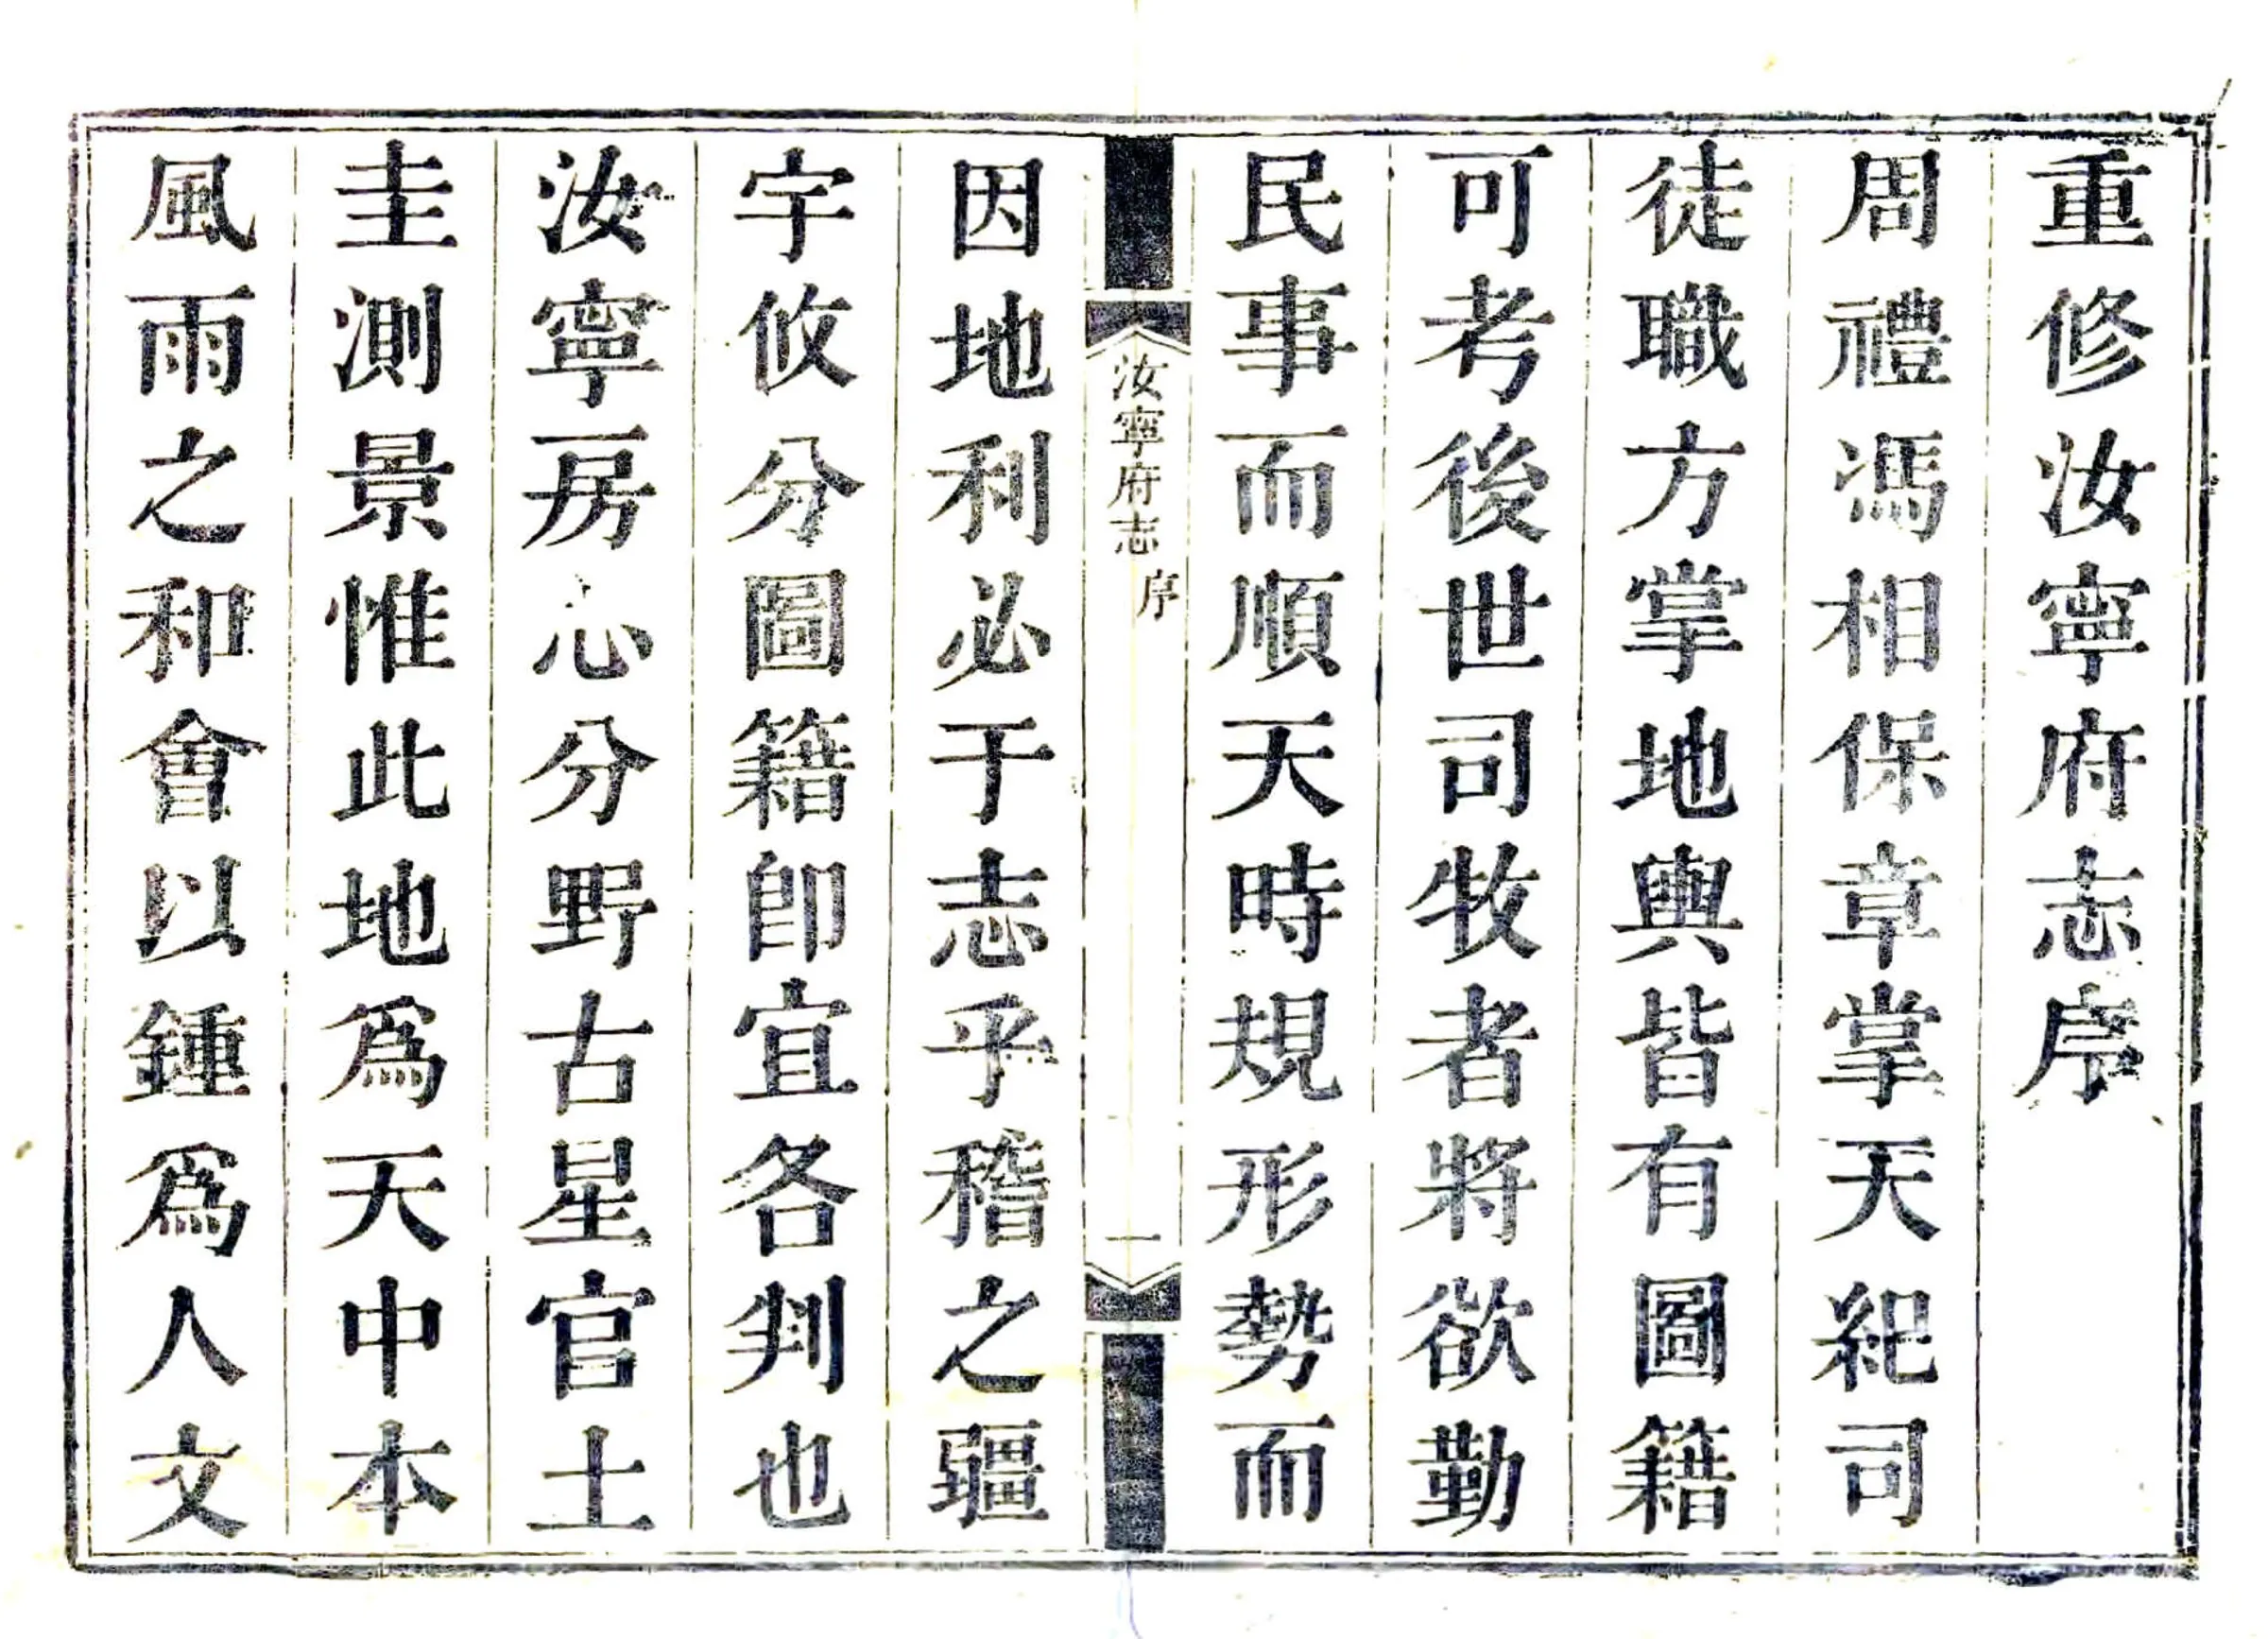 重修汝寧府志序
周禮馮相保章掌天紀司
徒職方掌地輿皆有圖籍
可考後世司牧者將欲勤
民事而順天時規形勢而
汝寧府志
序
一
因地利必于志乎稽之疆
宇攸分圖籍卽宜各判也
汝寧房心分野古星官土
圭測景惟此地爲天中本
風雨之和會以鍾爲人文